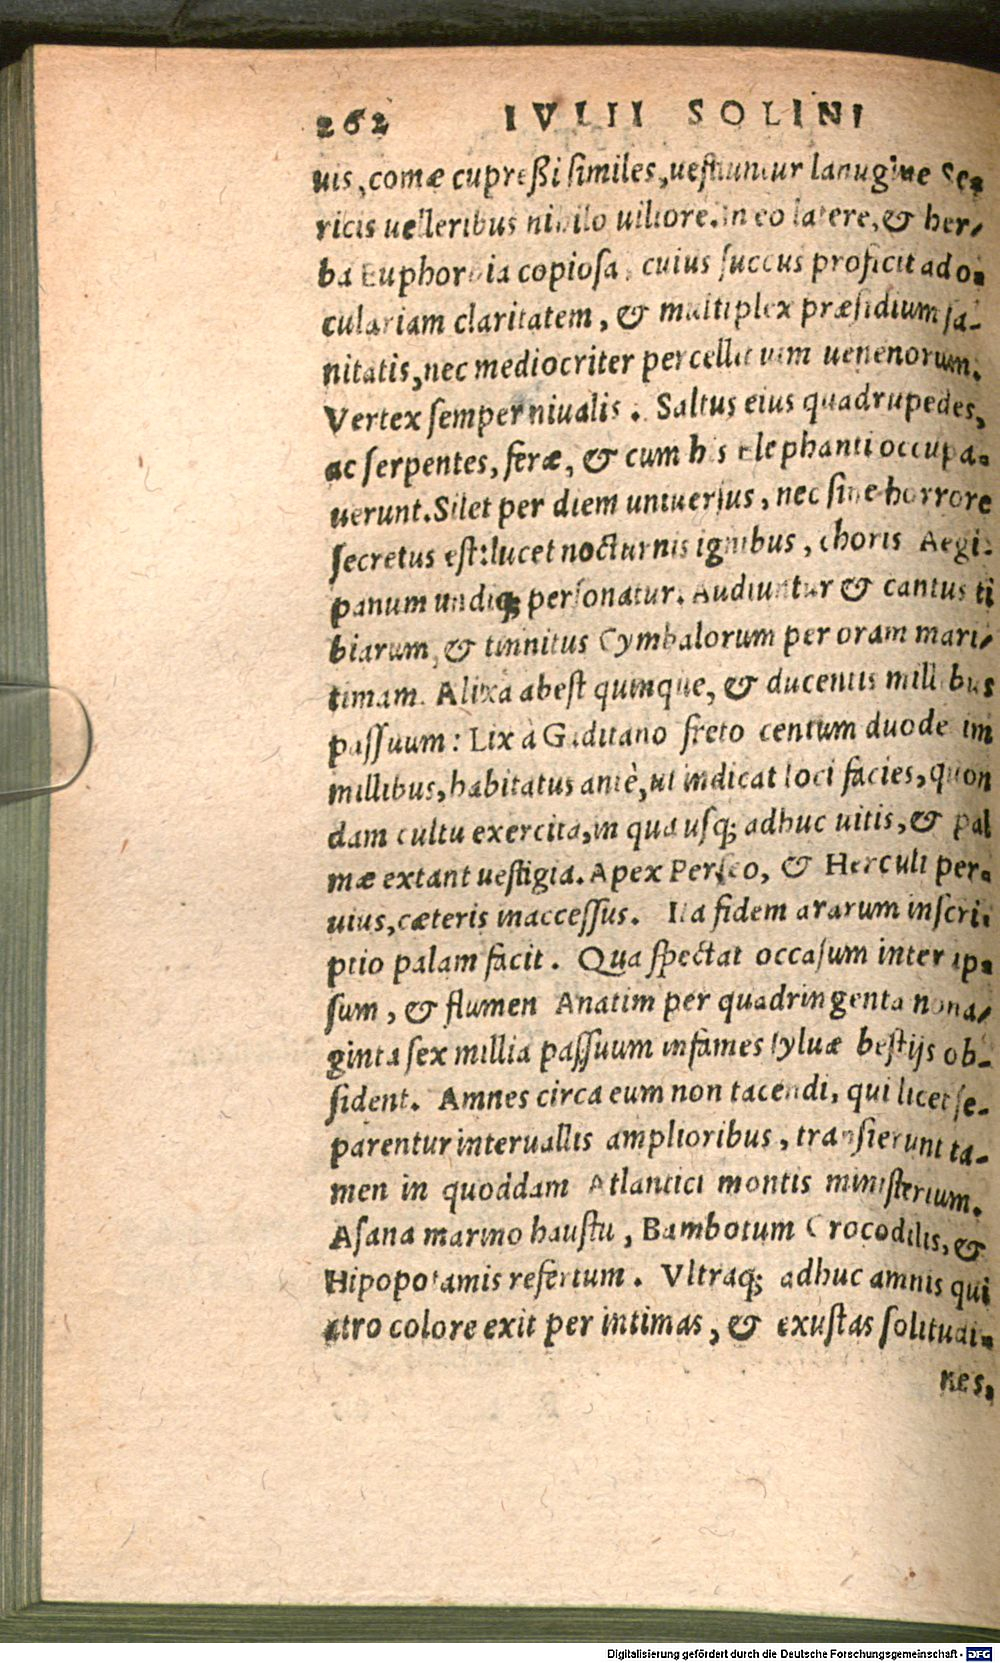 262 IVLII SOLINI
uis, comæ cupreßi ſimiles, ueſtiuntur lanugine Se-
ricis uelleribus nihilo uiliore. in eo latere, & her-
ba Euphorbia copioſa, cuius ſuccus proficit ad o-
culariam claritatem, & multiplex præſidium ſa-
nitatis, nec mediocriter percellit uim uenenorum.
Vertex ſemper niualis. Saltus eius quadrupedes,
ac ſerpentes, feræ, & cum his Elephanti occupa-
uerunt. Silet per diem uniuerſus, nec ſine horrore
ſecretus eſt: lucet nocturnis ignibus, choris Aegi-
panum undiq; perſonatur. Audiuntur & cantus ti
biarum, & tinnitus Cymbalorum per oram mari-
timam. A Lixa abeſt quinque, & ducentis millibus
paſſuum: Lix à Gaditano freto centum duodecim
millibus, habitatus antè, ut indicat loci facies, quon
dam cultu exercita, in qua uſq; adhuc uitis, & pal
mæ extant ueſtigia. Apex Perſeo, & Herculi per-
uius, cæteris inacceſſus. Ita fidem ararum inſcri-
ptio palam facit. Qua ſpectat occaſum inter ip-
ſum, & flumen Anatim per quadringenta nona-
ginta ſex millia paſſuum infames ſyluæ beſtijs ob-
ſident. Amnes circa eum non tacendi, qui licet ſe-
parentur interuallis amplioribus, tranſierunt ta-
men in quoddam Atlantici montis miniſterium.
Aſana marino hauſtu, Bambotum Crocodilis, &
Hipopotamis refertum. Vltraq; adhuc amnis qui
atro colore exit per intimas, & exuſtas ſolitudi-
nes,
Digitalisierung gefördert durch die Deutsche Forschungsgemeinschaft - DFG